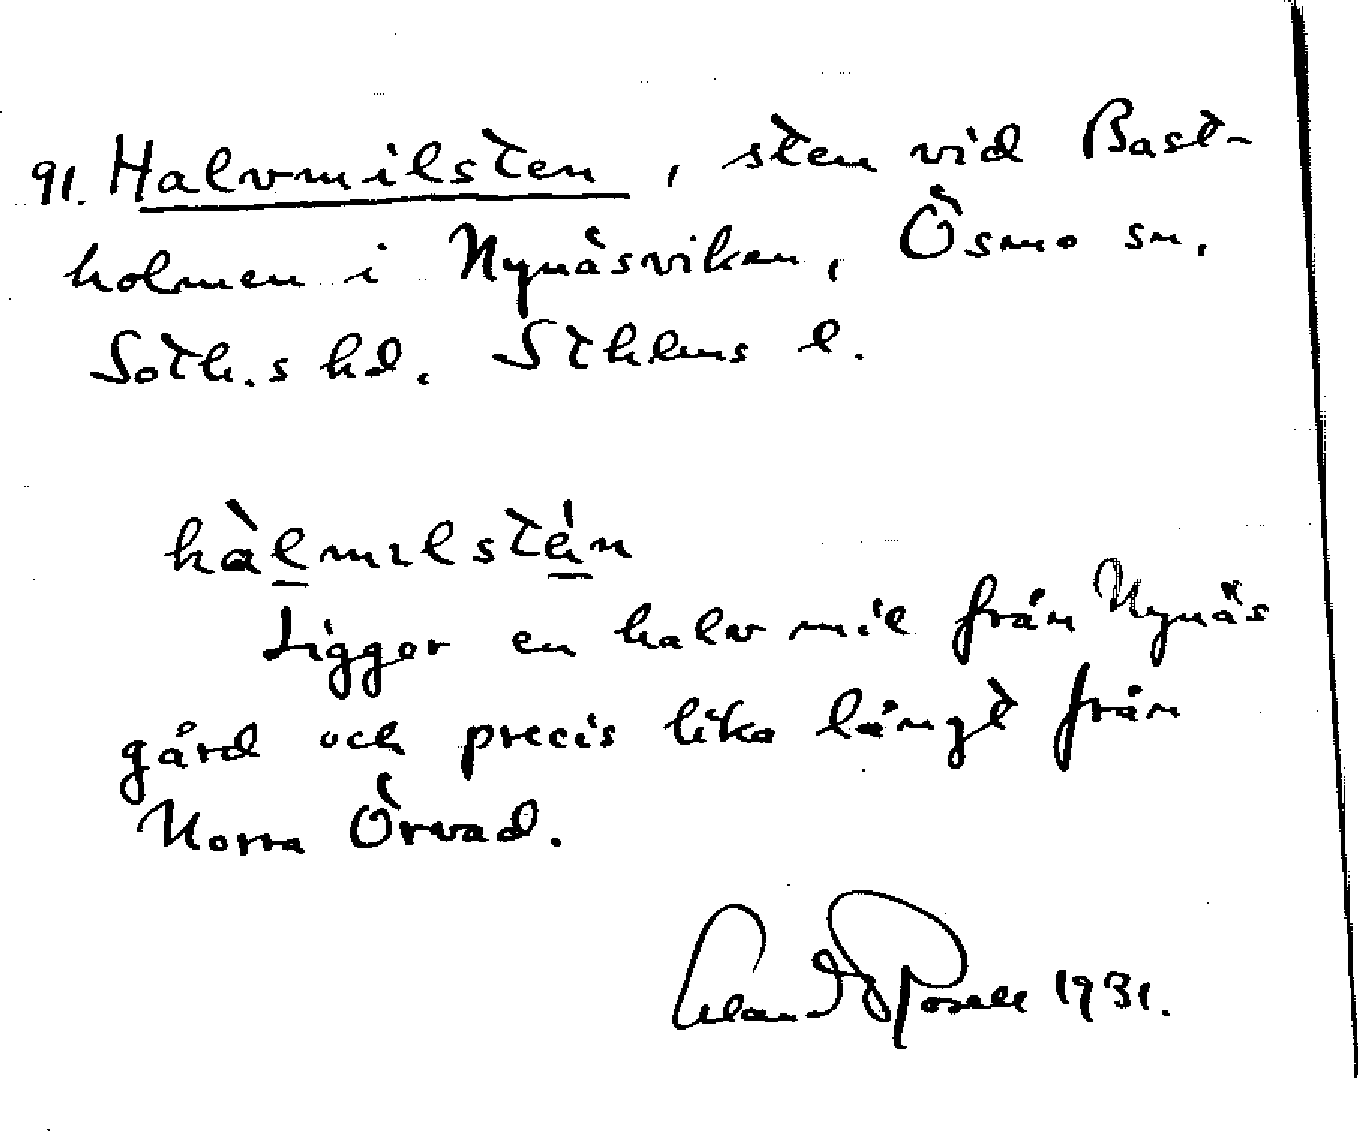 91. Halvmilsten, sten vid Bast-
holmen i Nynäsviken, Ösmo sn.
Soth.s hd. Sthlms l.
hàlmılstén
Ligger en halv mil från Nynäs
gård och precis lika långt från
Norra Örvad.
Erland Rosell 1931.